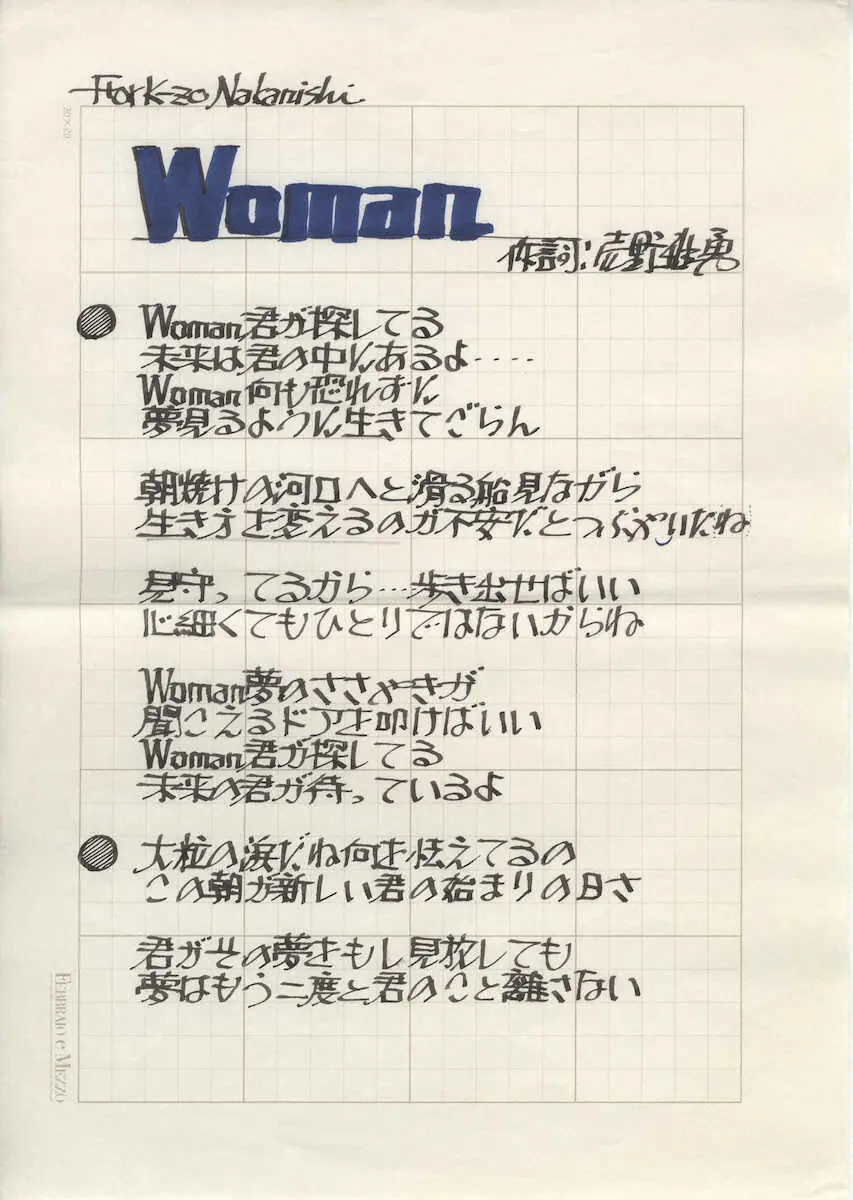 For K-zo Nakanishi
30×20
Woman
作詞:売野雅勇
Woman君が探してる
未来は君の中にあるよ‥‥
Woman何も恐れずに
夢見るように生きてごらん
朝焼けの河口へと滑る船見ながら
生き方を変えるのが不安だとつぶやいたね
見守ってるから…歩き出せばいい
心細くてもひとりではないからね
Woman夢のささやきが
聞こえるドアを叩けばいい
Woman君が探してる
未来の君が待っているよ
大粒の涙だね何を怯えてるの
この朝が新しい君の始まりの日さ
君がその夢をもし見放しても
夢はもう二度と君のこと離さない
FEBBRAIO e MEZZO